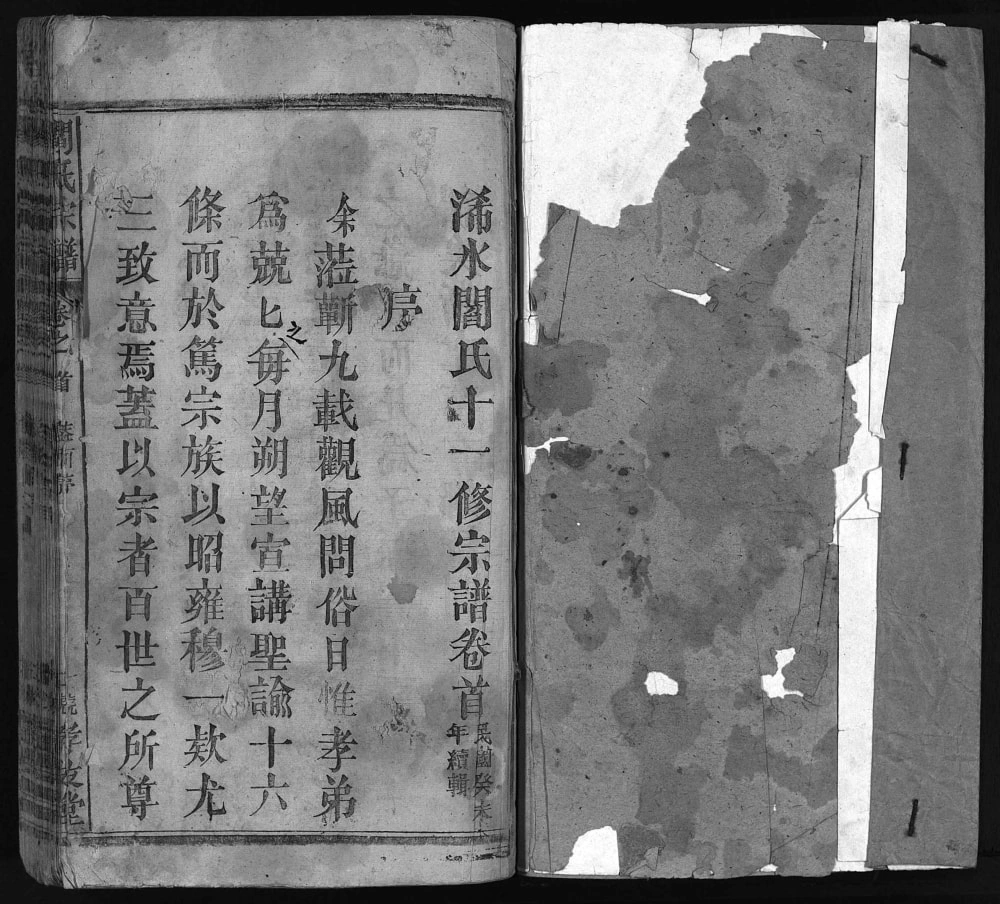 浠水閻氏十一修宗譜卷首 民國癸未年續輯
序
余蒞蘄九載觀風問俗日惟孝弟
爲兢匕之每月朔望宣講聖諭十六
條而於篤宗族以昭雍穆一欵尤
三致意焉蓋以宗者百世之所尊
閻氏宗譜 卷之首 一 孝友堂